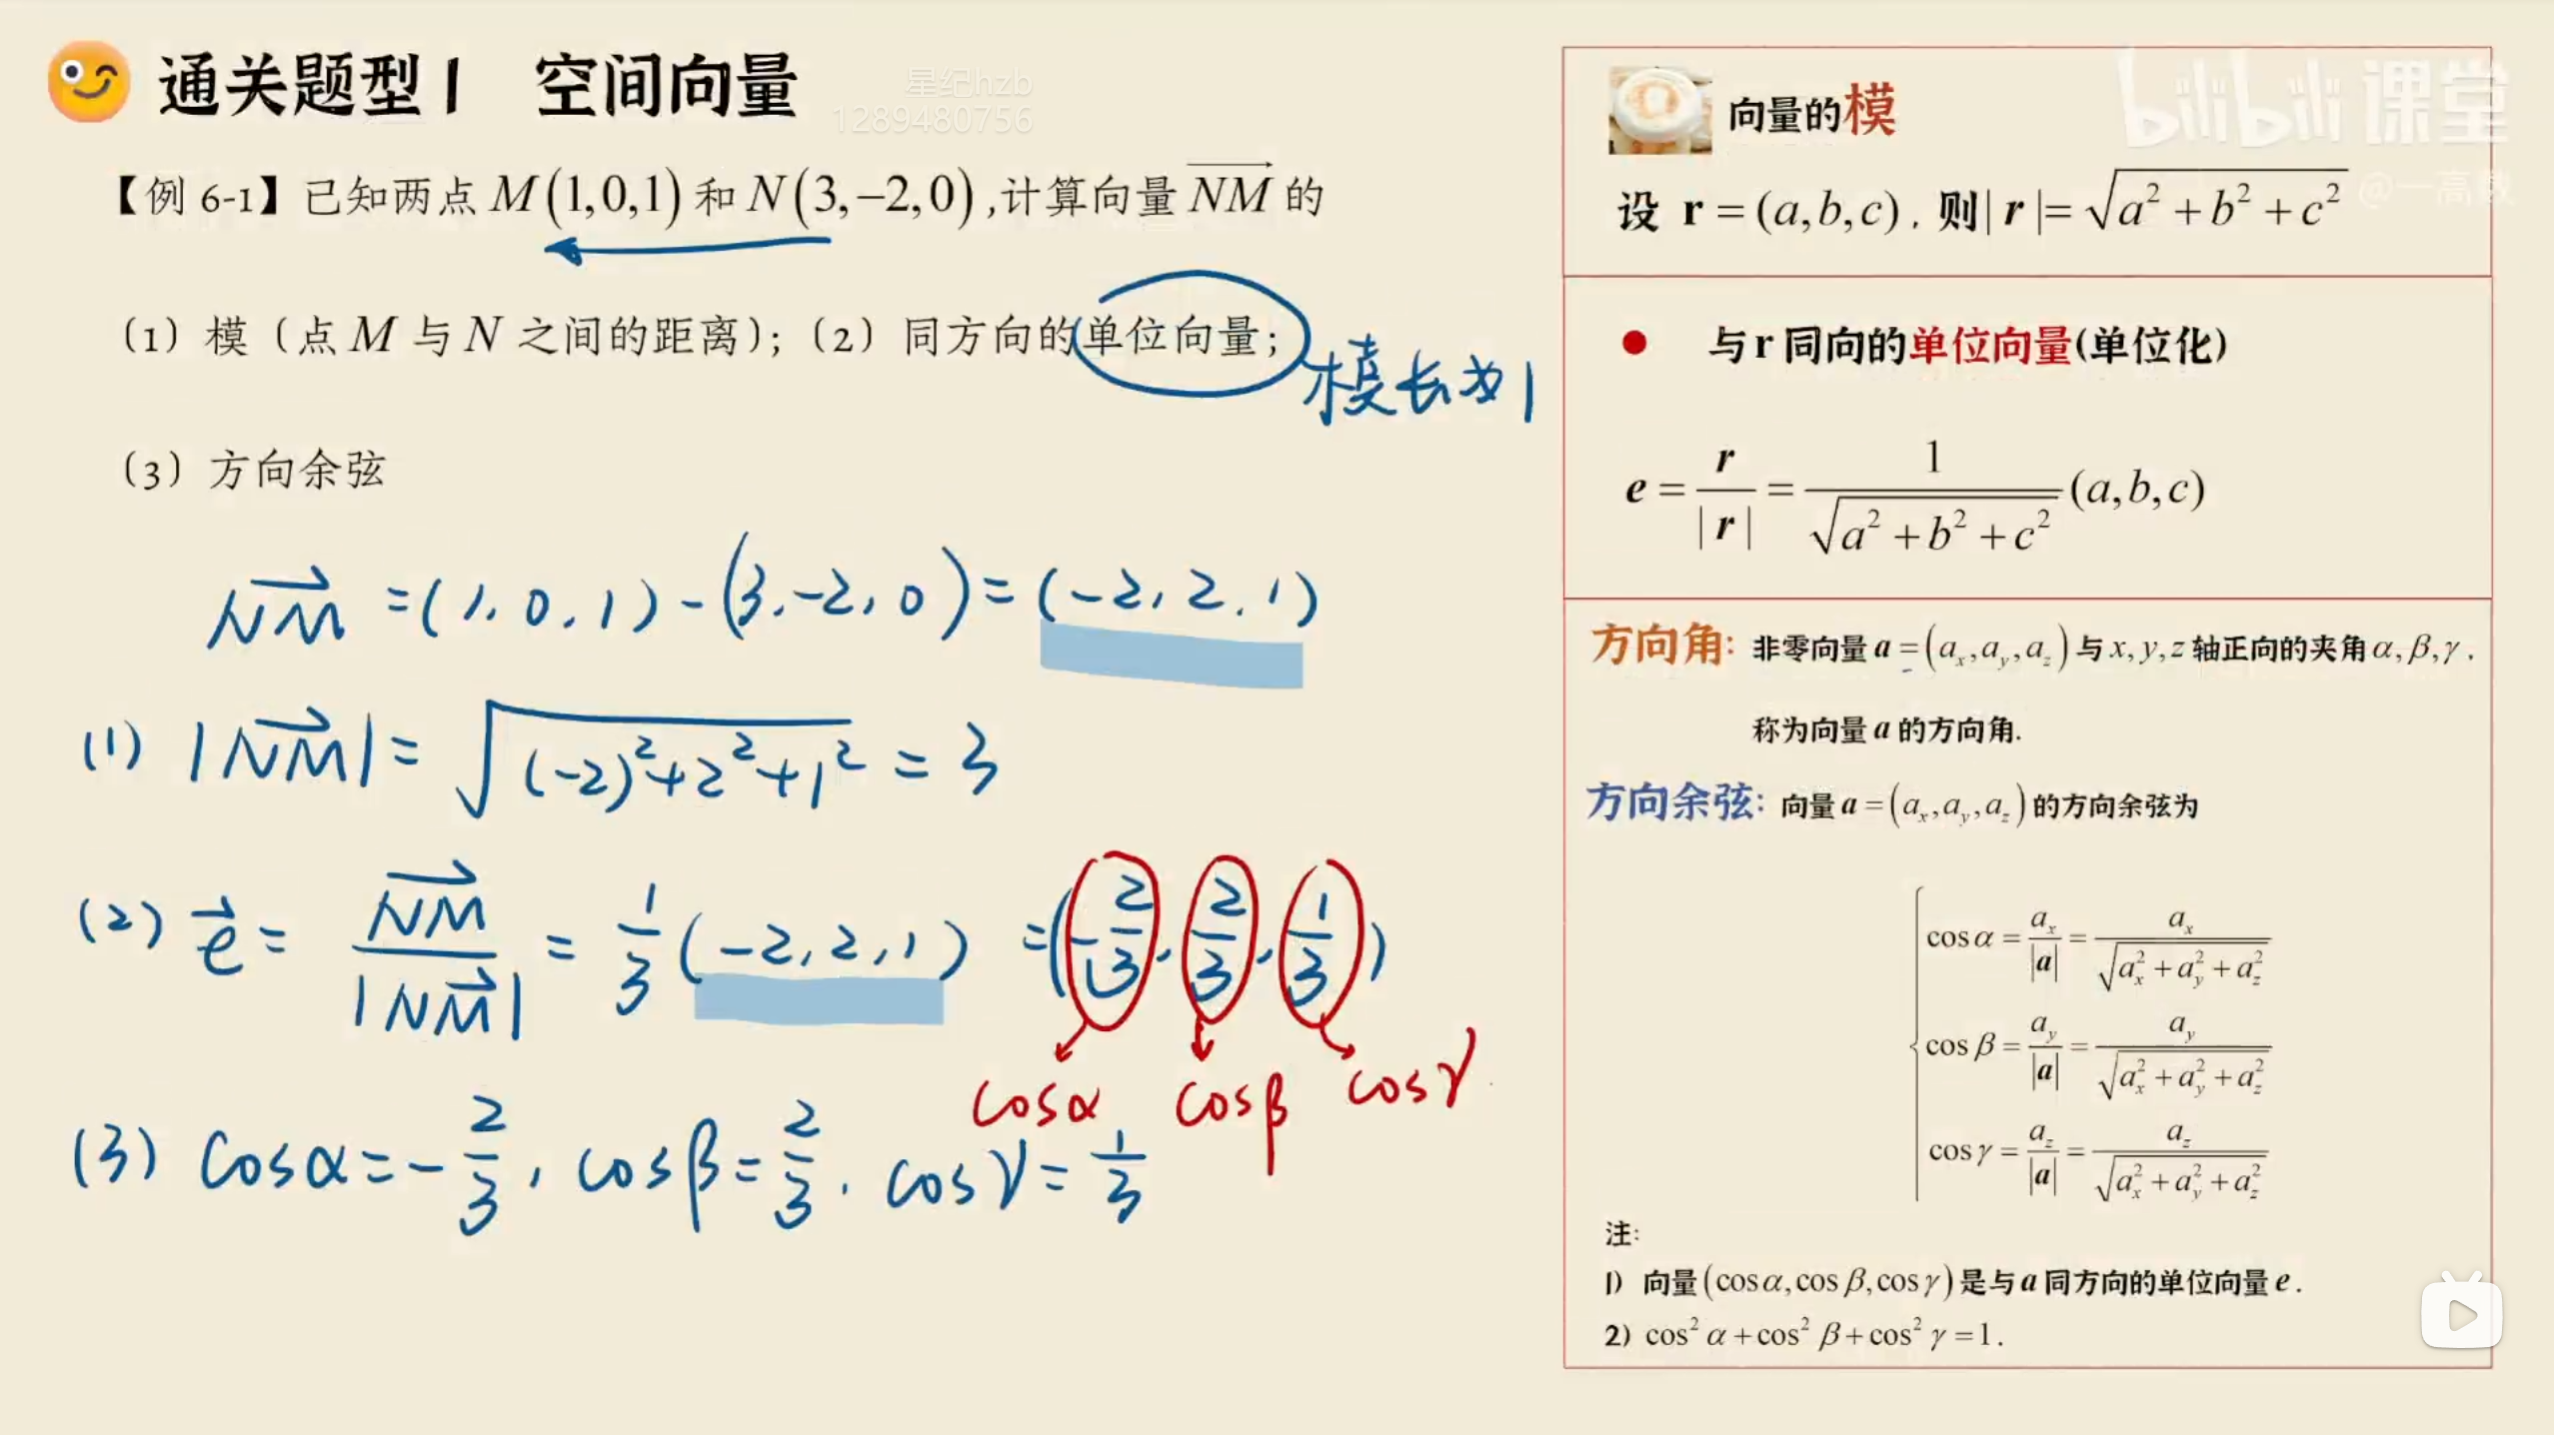 通关题型1 空间向量
星纪hzb
1289480756
【例 6-1】已知两点 M(1,0,1) 和 N(3,−2,0) ,计算向量 \overrightarrow{NM} 的
（1）模（点 M 与 N 之间的距离）；（2）同方向的单位向量；
模长为1
（3）方向余弦
\overrightarrow{NM} = (1, 0, 1) - (3, -2, 0) = (-2, 2, 1)
(1) |\overrightarrow{NM}| = \sqrt{(-2)^2+2^2+1^2} = 3
(2) \vec{e} = \frac{\overrightarrow{NM}}{|\overrightarrow{NM}|} = \frac{1}{3}(-2, 2, 1) = (-\frac{2}{3}, \frac{2}{3}, \frac{1}{3})
cosα cosβ cosγ
(3) cosα = -\frac{2}{3}, cosβ = \frac{2}{3}, cosγ = \frac{1}{3}
bilibili 课堂
向量的模
设 r = (a,b,c) , 则| r |= \sqrt{a^2+b^2+c^2}
● 与 r 同向的单位向量(单位化)
e = \frac{r}{|r|} = \frac{1}{\sqrt{a^2+b^2+c^2}} (a,b,c)
方向角: 非零向量 a = (a_x,a_y,a_z) 与 x, y, z 轴正向的夹角 α, β, γ .
称为向量 a 的方向角.
方向余弦: 向量 a = (a_x,a_y,a_z) 的方向余弦为
cos α = \frac{a_x}{|a|} = \frac{a_x}{\sqrt{a_x^2+a_y^2+a_z^2}}
cos β = \frac{a_y}{|a|} = \frac{a_y}{\sqrt{a_x^2+a_y^2+a_z^2}}
cos γ = \frac{a_z}{|a|} = \frac{a_z}{\sqrt{a_x^2+a_y^2+a_z^2}}
注:
1) 向量 (cos α, cos β, cos γ) 是与 a 同方向的单位向量 e .
2) cos² α + cos² β + cos² γ = 1 .